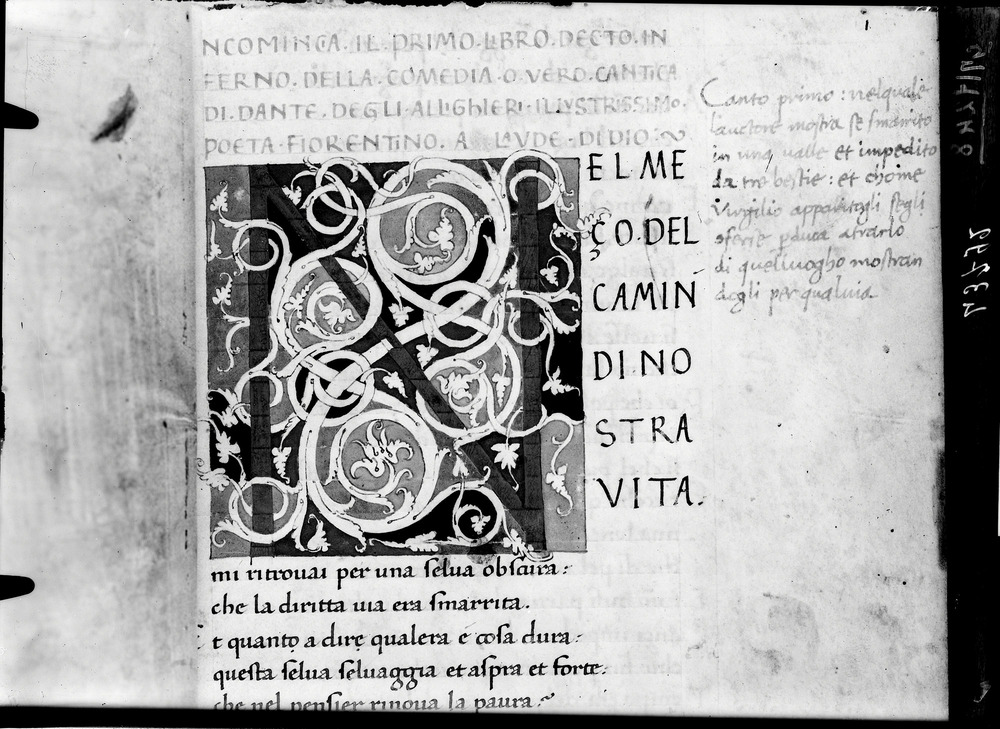 NCOMINCA · IL · PRIMO · LIBRO · DECTO · IN
FERNO · DELLA · COMEDIA · O VERO · CANTICA
DI · DANTE · DEGLI · ALLIGHIERI · ILLVSTRISSIMO ·
POETA · FIORENTINO · A · LAVDE · DI DIO :~
N
EL ME
ÇO · DEL
CAMIN
DI NO
STRA
VITA .
mi ritrouai per una selua obscura :
che la diritta uia era smarrita .
t quanto a dire qualera e cosa dura :
questa selua seluaggia et aspra et forte :
che nel pensier rinoua la paura :~
1
Canto primo : nelquale
lauctore mostra se smarrito
in una ualle et impedito
da tre bestie : et chome
Virgilio apparitogli segli
atrarlo
di quelluogho mostran
dogli per qual uia